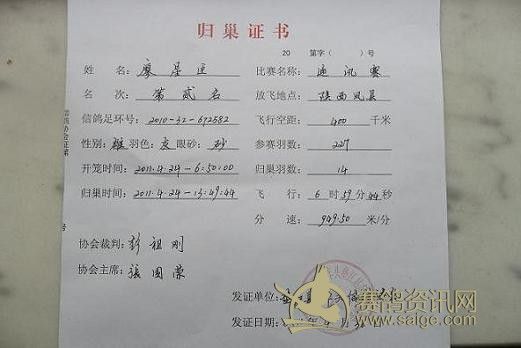 归巢证书
20 第字( )号
姓 名: 廖星 比赛名称: 通讯赛
名 次: 第贰名 放飞地点: 陕西凤县
信鸽足环号: 2010-32-672582 飞行空距: 400 千米
性别: 雄 羽色: 灰 眼砂: 砂 参赛羽数: 227
开笼时间: 2011.4.24-6:50:00 归巢羽数: 14
归巢时间: 2011.4.24-13:49:44 飞 行: 6 时 59 分 44 秒
分 速: 949.50 米/分
协会裁判: 彭祖刚
协会主席: 张国荣
发证单位:
发证日期:
赛鸽资讯网
www.saige.com